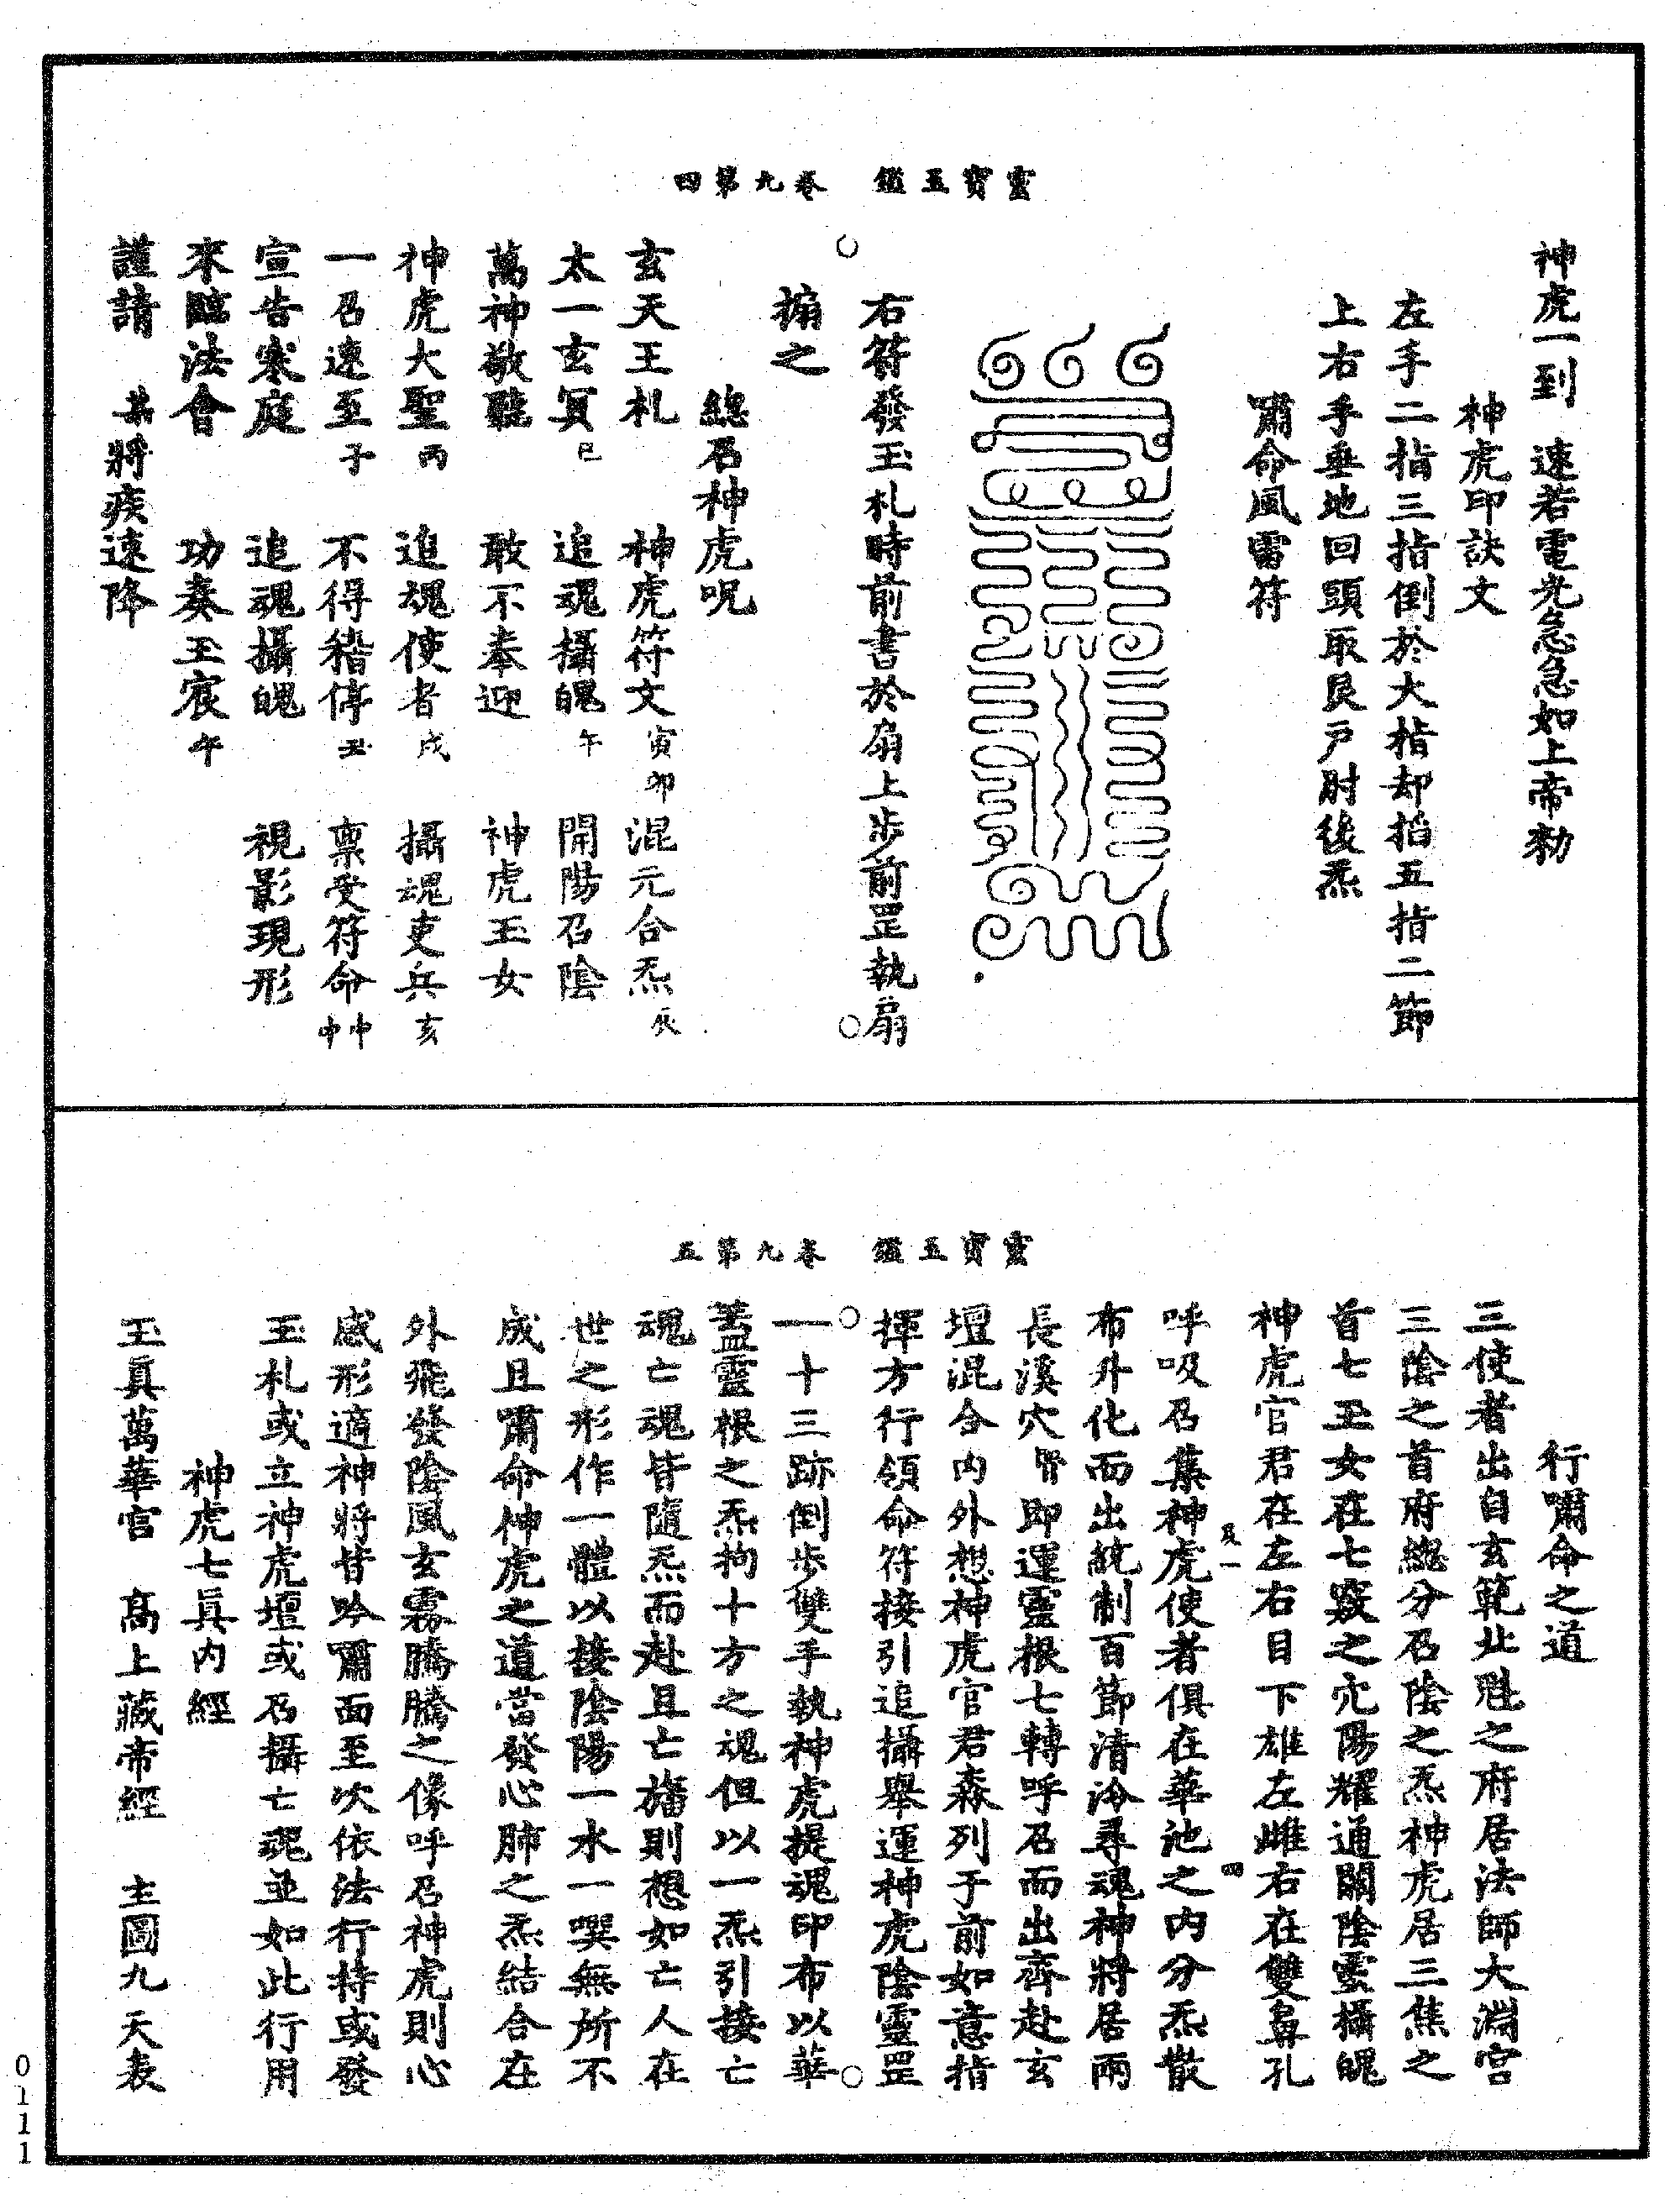 靈寶玉鑑　卷九第四
神虎一到　速若電光急急如上帝勑
神虎印訣文
左手二指三指倒於大指却掐五指二節
上右手垂地回頭取艮戶肘後炁
嘯命風雷符
右符發玉札時前書於扇上步前罡執扇
搧之
總召神虎呪
玄天玉札　神虎符文寅卯混元合炁辰
太一玄冥巳　追魂攝魄午　開陽召陰
萬神敬聽　敢不奉迎　神虎玉女
神虎大聖丙　追魂使者戌　攝魂吏兵亥
一召速至子　不得稽停丑　稟受符命申中
宣告寒庭　追魂攝魄　視影現形
來臨法會　功奏玉宸午
謹請　某將疾速降
靈寶玉鑑　卷九第五
行嘯命之道
三使者出自玄範北魁之府居法師大淵宮
三陰之首府總分召陰之炁神虎居三焦之
首七玉女在七竅之穴陽耀通關陰靈攝魄
神虎官君在左右目下雄左雌右在雙鼻孔
呼吸召集神虎使者俱在華池之内分炁散
布升化而出統制百節清泠尋魂神將居兩
長溪穴腎即運靈根七轉呼召而出齊赴玄
壇混合内外想神虎官君森列于前如意指
揮方行領命符接引追攝舉運神虎陰靈罡
一十三跡倒步雙手執神虎提魂印布以華
蓋靈根之炁拘十方之魂但以一炁引接亡
魂亡魂皆隨炁而赴且亡旛則想如亡人在
世之形作一體以接陰陽一水一噀無所不
成且嘯命神虎之道當發心肺之炁結合在
外飛發陰風玄霧騰騰之像呼召神虎則心
感形適神將皆吟嘯而至吹依法行持或發
玉札或立神虎壇或召攝亡魂並如此行用
神虎七眞内經
玉眞萬華宮　高上藏帝經　主圖九天表
0111